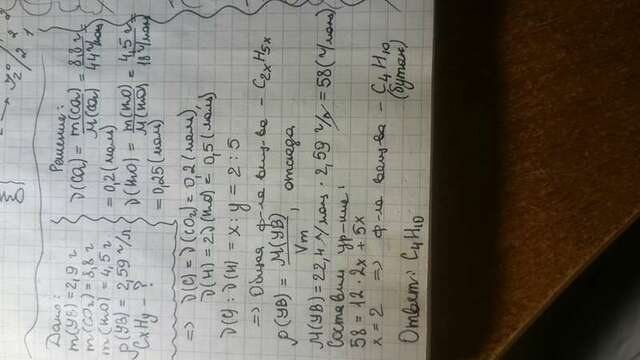 Дано:
m(УВ)=2,9 г
m(CO2)=8,8 г
m(H2O)=4,5 г
ρ(УВ)=2,59 г/л
CxHy - ?
Решение:
ν(CO2) = m(CO2)/M(CO2) = 8,8 г/44 г/моль =
= 0,2 (моль)
ν(H2O) = m(H2O)/M(H2O) = 4,5 г/18 г/моль =
= 0,25 (моль)
=> ν(C) = ν(CO2) = 0,2 (моль),
ν(H) = 2ν(H2O) = 0,5 (моль)
ν(C) : ν(H) = x : y = 2 : 5
=> Общая ф-ла вещ-ва - C2xH5x
ρ(УВ) = M(УВ)/Vm, отсюда
M(УВ) = 22,4 л/моль · 2,59 г/л = 58 (г/моль)
Составим ур-ние:
58 = 12 · 2x + 5x
x = 2 => ф-ла вещ-ва - C4H10
(бутан)
Ответ: C4H10